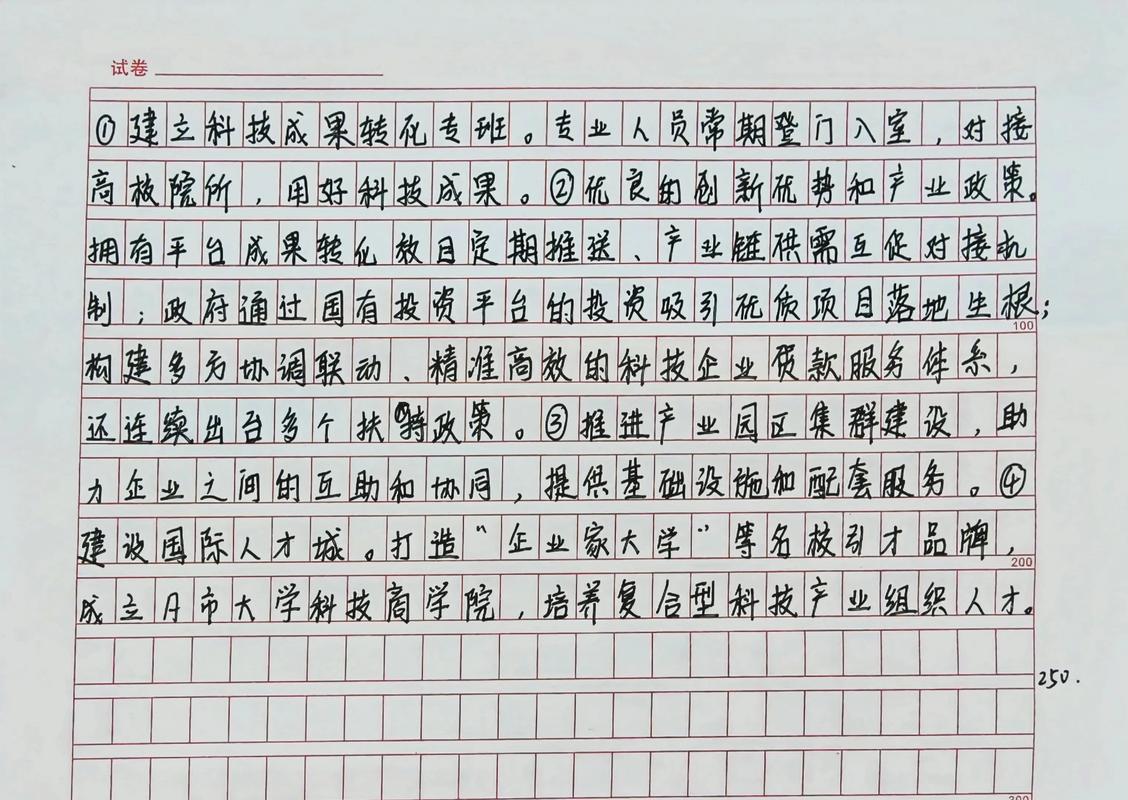 试卷
①建立科技成果转化专班。专业人员常期登门入室,对接
高校院所,用好科技成果。②优良的创新优势和产业政策。
拥有平台成果转化放目定期推送、产业链供需互促对接机
制;政府通过国有投资平台的投资吸引优质项目落地生根;
100
构建多方协调联动、精准高效的科技企业贷款服务体系,
还连续出台多个扶持政策。③推进产业园区集群建设,助
力企业之间的互助和协同,提供基础设施和配套服务。④
建设国际人才城。打造“企业家大学”等名校引才品牌,
200
成立月市大学科技商学院,培养复合型科技产业组织人才。
250.
300